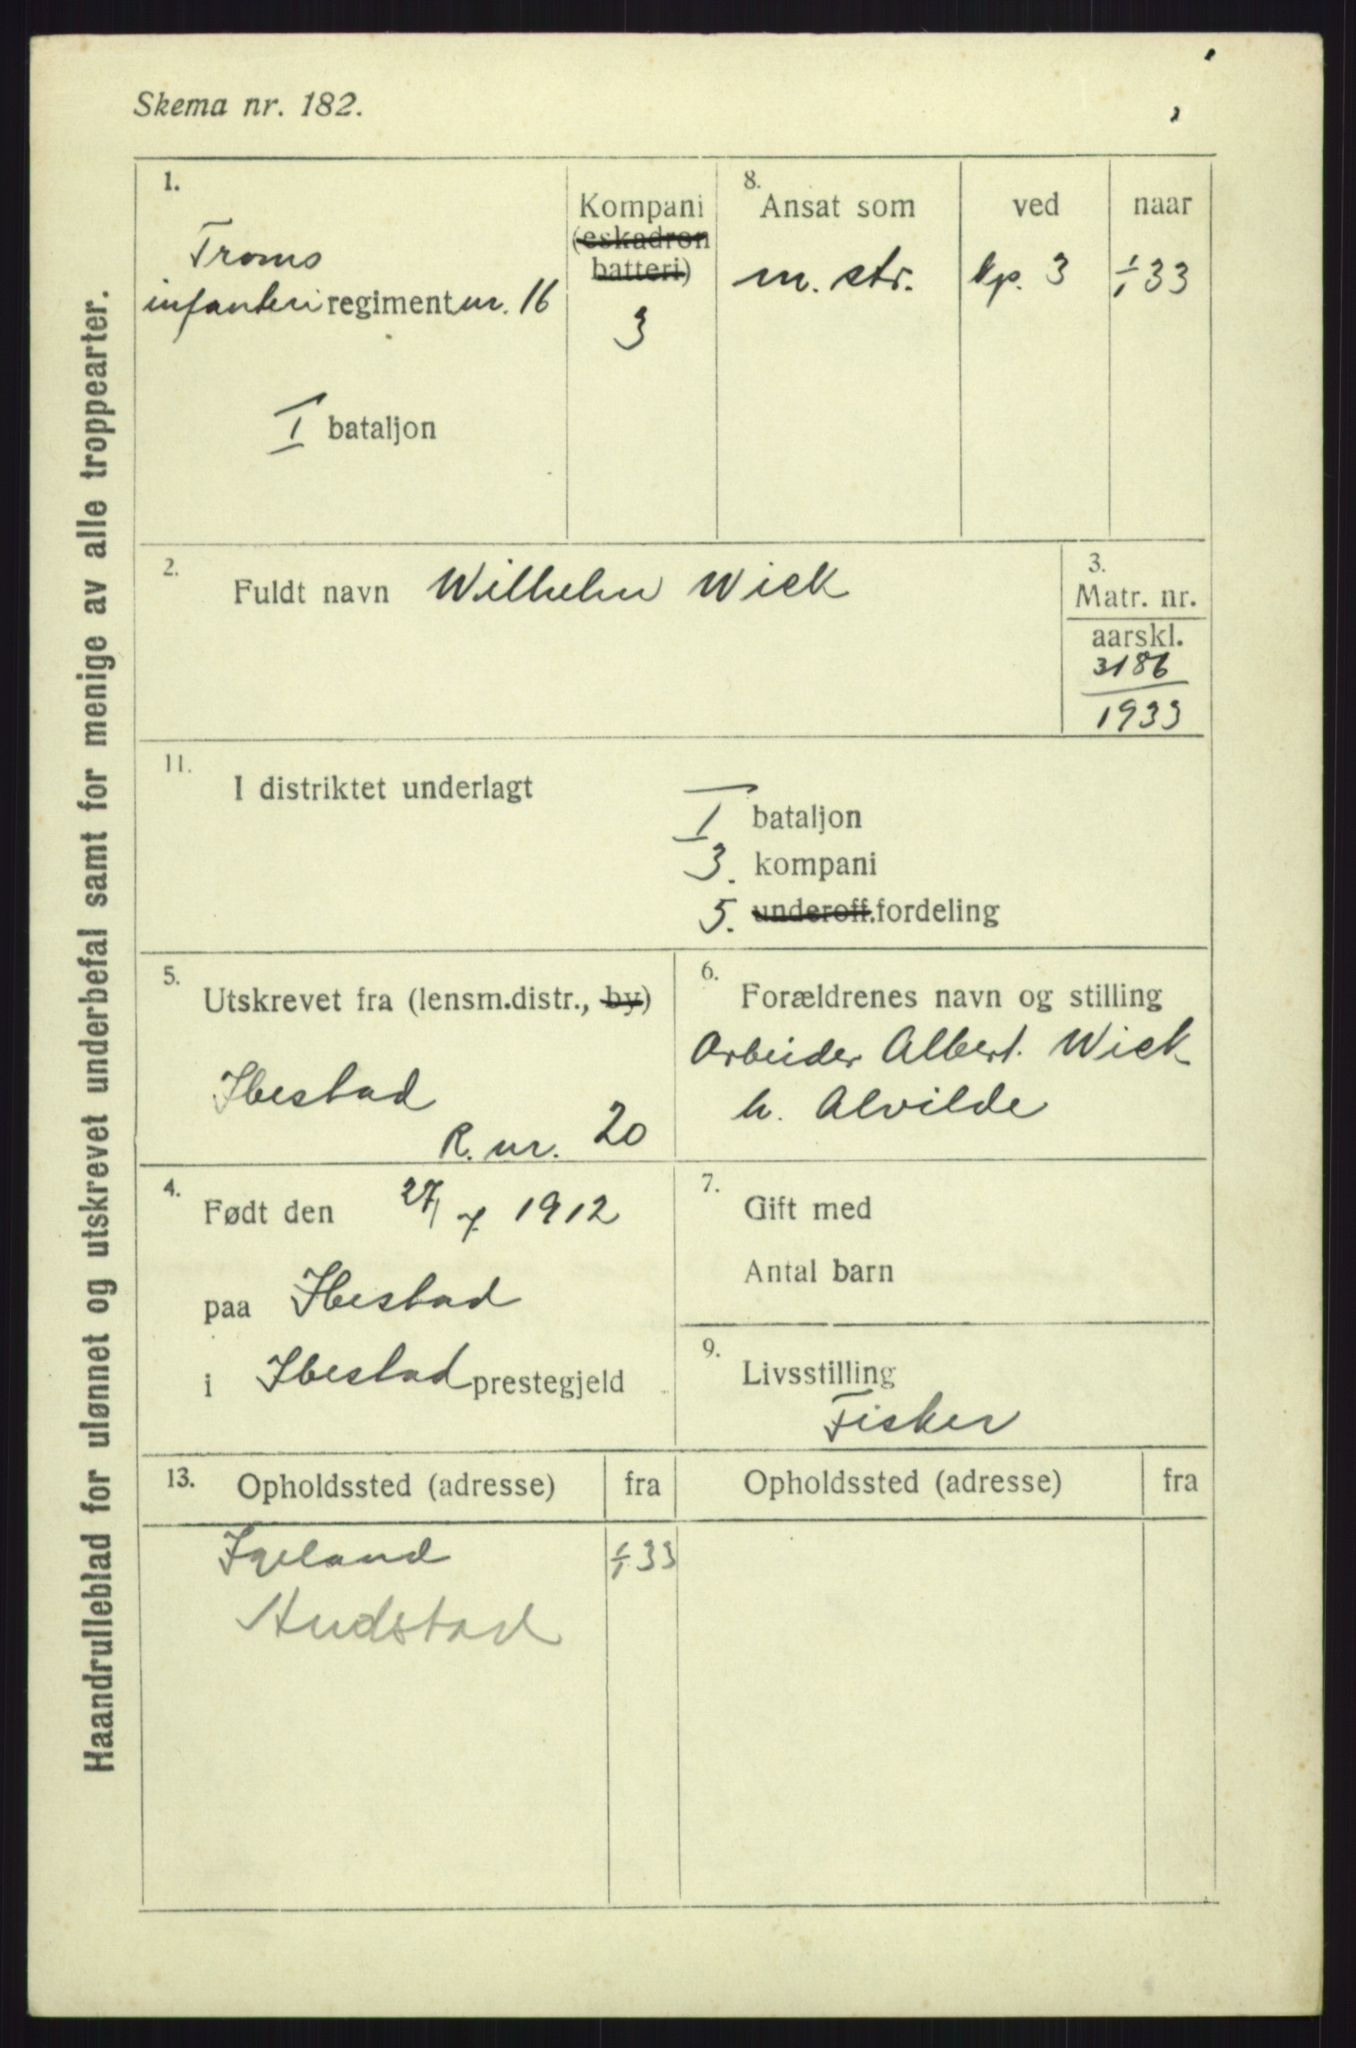 Skema nr. 182.
Haandrulleblad for ulønnet og utskrevet underbefal samt for menige av alle troppearter.
1.
Troms
infanteri regiment nr. 16
I bataljon
Kompani
(eskadron
batteri)
3
8.
Ansat som
m. str.
ved
kp. 3
naar
1/1 33
2.
Fuldt navn Wilhelm Wick
3.
Matr. nr.
aarskl.
3186
1933
11.
I distriktet underlagt
I bataljon
3. kompani
5. underoff.fordeling
5.
Utskrevet fra (lensm.distr., by)
Ibestad
R. nr. 20
6.
Forældrenes navn og stilling
Arbeider Albert Wick
h. Alvilde
4.
Født den 27/7 1912
paa Ibestad
i Ibestad prestegjeld
7.
Gift med
Antal barn
9.
Livsstilling
Fisker
13.
Opholdssted (adresse) fra
1/1 33
Opholdssted (adresse) fra